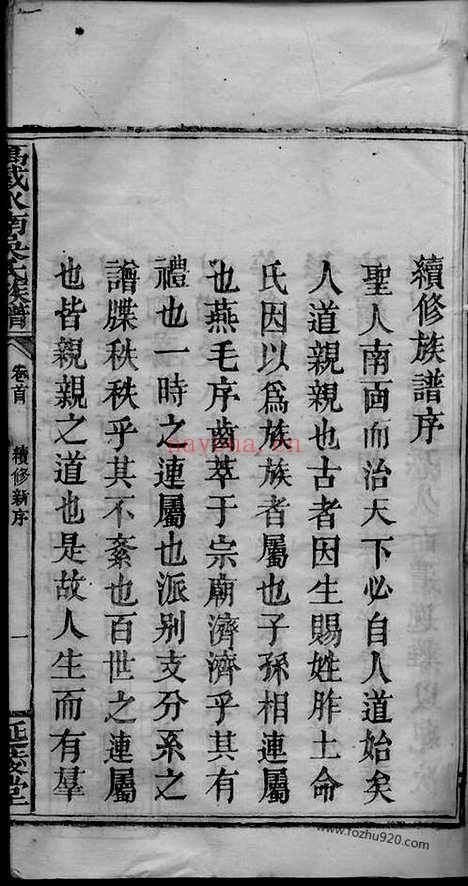 續修族譜序
聖人南面而治天下必自人道始矣
人道親親也古者因生賜姓胙土命
氏因以爲族族者屬也子孫相連屬
也燕毛序齒萃于宗廟濟濟乎其有
禮也一時之連屬也派别支分系之
譜牒秩秩乎其不紊也百世之連屬
也皆親親之道也是故人生而有羣
萬載水南吳氏族譜
卷首
續修新序
一
延陵堂
nayona.cn
www.fozhu920.com